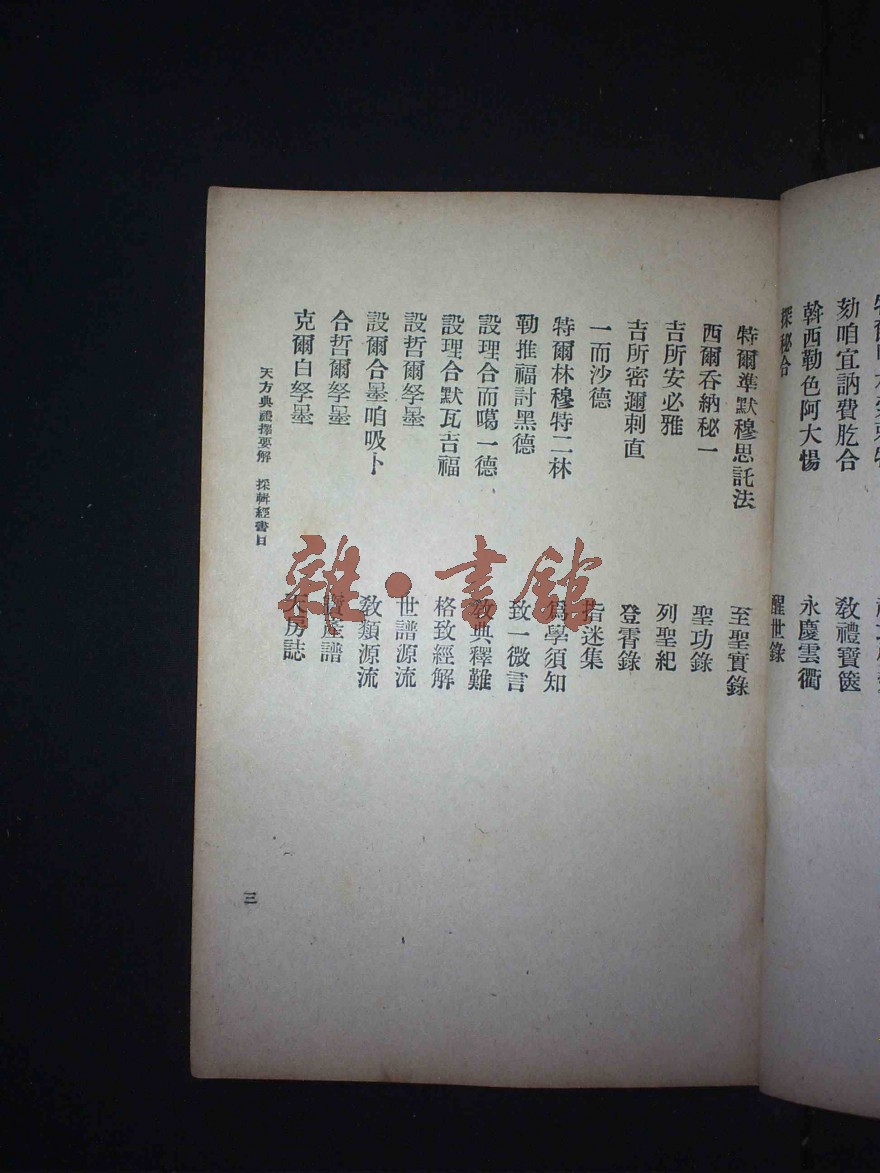 劾咱宜訥費肐合
敎禮寶篋
斡西勒色阿大惕
永慶雲衢
探秘合
醒世錄
特爾準默穆思託法
至聖實錄
西爾呑納秘一
聖功錄
吉所安必雅
列聖紀
吉所密邇剌直
登霄錄
一而沙德
指迷集
特爾林穆特二林
爲學須知
勒推福討黑德
致一微言
設理合而噶一德
敎典釋難
設理合默瓦吉福
格致經解
設哲爾孥墨
世譜源流
設爾合墨咱吸卜
敎類源流
合哲爾孥墨
寶產譜
克爾白孥墨
天房誌
天方典禮擇要解 採輯經書目
三
雜·書館